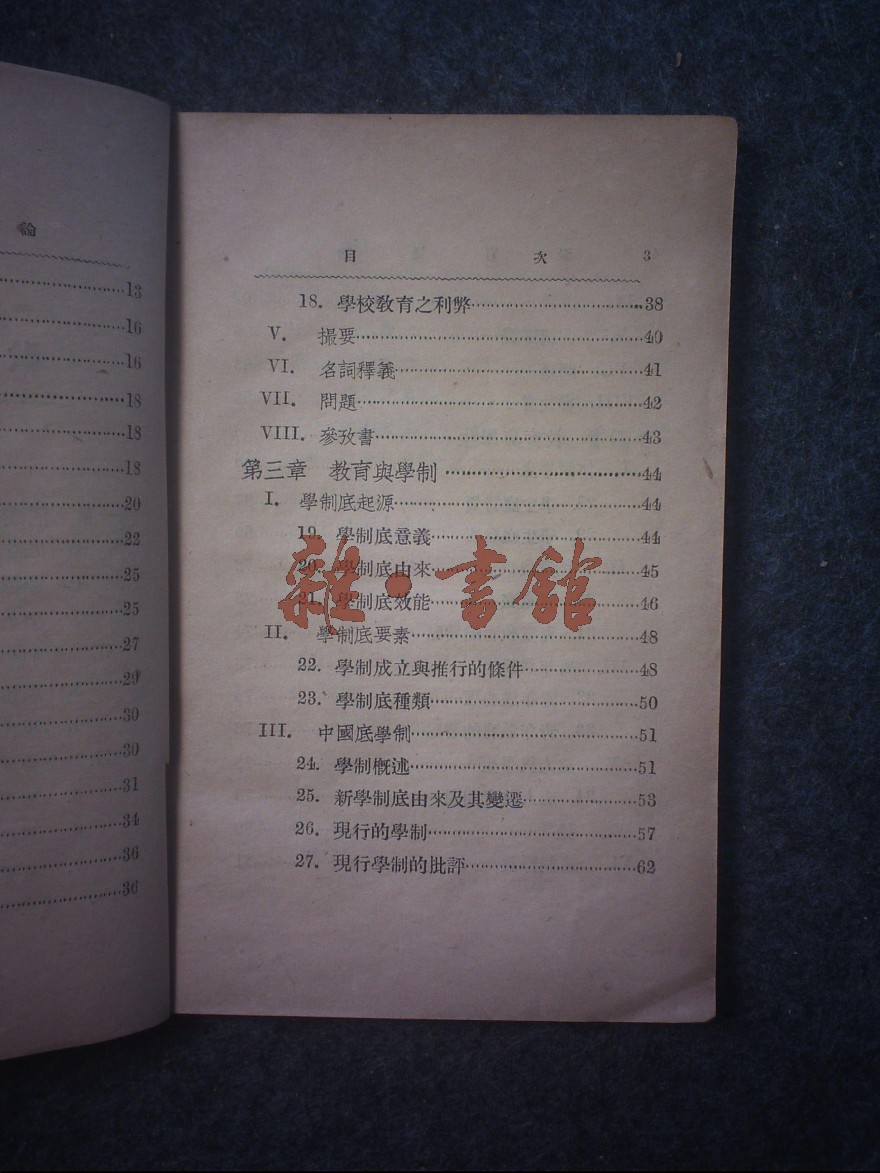 論
13
16
16
18
18
18
20
22
25
25
27
29
30
30
31
34
36
36
目 次 3
18. 學校敎育之利弊 38
V. 撮要 40
VI. 名詞釋義 41
VII. 問題 42
VIII. 參攷書 43
第三章 敎育與學制 44
I. 學制底起源 44
19. 學制底意義 44
20. 學制底由來 45
21. 學制底效能 46
II. 學制底要素 48
22. 學制成立與推行的條件 48
23. 學制底種類 50
III. 中國底學制 51
24. 學制槪述 51
25. 新學制底由來及其變遷 53
26. 現行的學制 57
27. 現行學制的批評 62
雜·書館